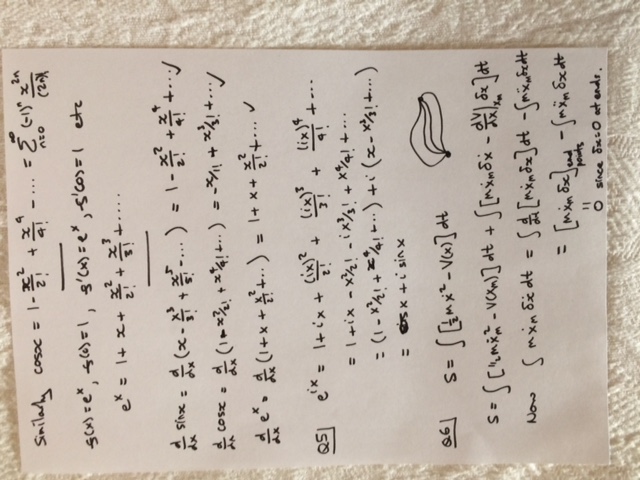 Similarly cosx = 1 - x²/2! + x⁴/4! - .... = ∑_{n=0}^{∞} (-1)ⁿ x²ⁿ/(2n)!
g(x) = eˣ, g(0) = 1, g'(x) = eˣ, g'(0) = 1 etc
eˣ = 1 + x + x²/2! + x³/3! + .....
d/dx sinx = d/dx (x - x³/3! + x⁵/5! - ...) = 1 - x²/2! + x⁴/4! + .... ✓
d/dx cosx = d/dx (1 - x²/2! + x⁴/4! + ...) = -x/1! + x³/3! + .... ✓
d/dx eˣ = d/dx (1 + x + x²/2! + ...) = 1 + x + x²/2! + .... ✓
Q5 e^{ix} = 1 + ix + (ix)²/2! + (ix)³/3! + (ix)⁴/4! + ....
= 1 + ix - x²/2! - ix³/3! + x⁴/4! + ....
= (1 - x²/2! + x⁴/4! + ...) + i(x - x³/3! + ...)
= cosx + i sinx
Q6 S = ∫[½mẋ² - V(x)]dt
S = ∫[½mẋₘ² - V(xₘ)]dt + ∫[mẋₘ δẋ - dV/dx|ₓₘ δx]dt
Now ∫mẋₘ δẋ dt = ∫ d/dt [mẋₘ δx]dt - ∫mẍₘ δx dt
= [mẋₘ δx] end points - ∫mẍₘ δx dt
=
0 since δx=0 at ends.